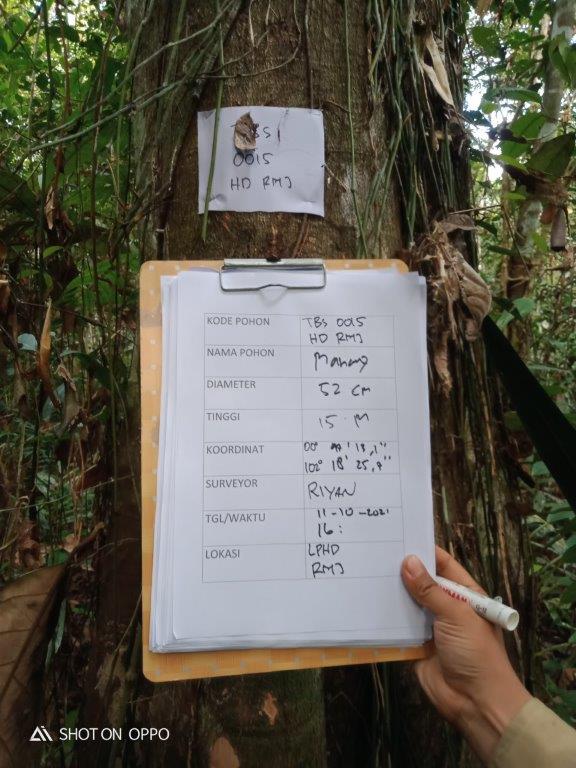 0015
HD RMJ
KODE POHON TBS 0015
HD RMJ
NAMA POHON
DIAMETER 52 CM
TINGGI 15 M
KOORDINAT 00°
102° 18' 25,
SURVEYOR RIYAN
TGL/WAKTU 11-10-2021
16:
LOKASI LPHD
RMJ
SHOT ON OPPO